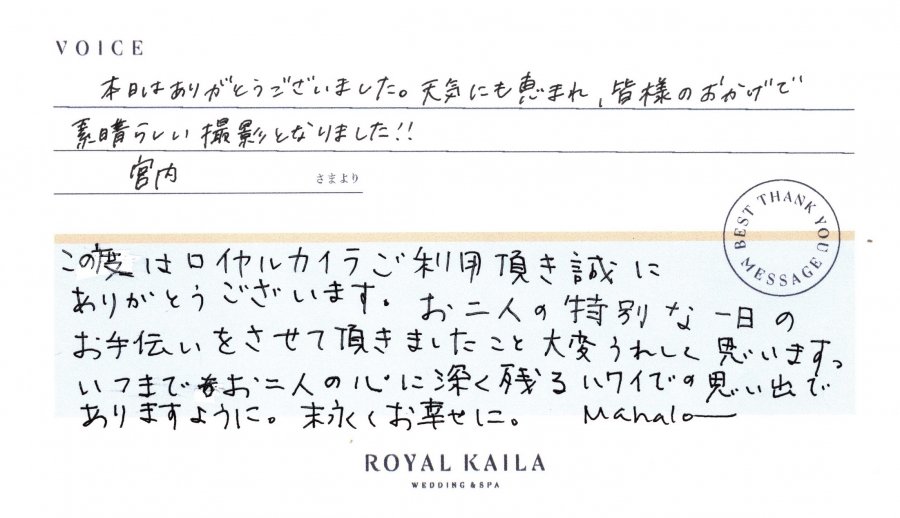 VOICE
本日はありがとうございました。天気にも恵まれ、皆様のおかげで
素晴らしい撮影となりました!!
宮内 さまより
BEST THANK YOU MESSAGE
この度はロイヤルカイラご利用頂き誠に
ありがとうございます。お二人の特別な一日の
お手伝いをさせて頂きましたこと大変うれしく思います。
いつまでもお二人の心に深く残るハワイでの思い出で
ありますように。末永くお幸せに。 Mahalo
ROYAL KAILA
WEDDING & SPA